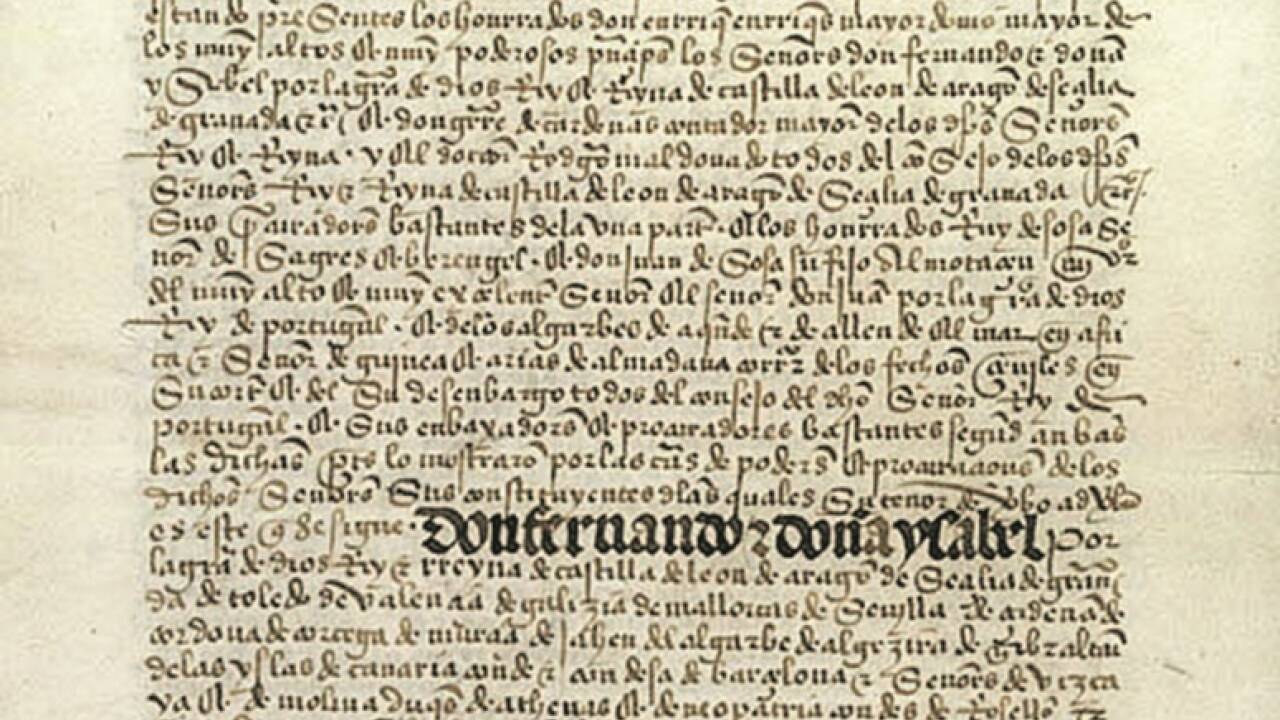 estando presentes los honrrados don enrriq enrriqs mayordomo mayor de
los muy altos & muy poderosos prinçipes los Señors don fernando & doña
ysabel por la graçia de dios Rey & Reyna de castilla de leon de aragō de seçilia
de granada &c & don gutrre de cardenas contador mayor de los dhos Señors
Rey & Reyna y el doctor Rodgo maldonado todos del consejo de los dhos
Señors Rey & Reyna de castilla de leon de aragō de Seçilia de granada &c
Sus procuradors bastantes de la vna part & los honrrados Ruy de sosa Se
ñor de Sagres & berengel & don Juan de Sosa su fijo Almotaçen mayor
del muy alto & muy exçelent Señor el señor don juā por la graçia de dios
Rey de portugal & de los algarbes de aquende & de allende el mar en afri
ca & Señor de guinea & arias de almadana corr de los fechos çeuiles en
Su cort & del Su desenbargo todos del consejo del dho Señor Rey de
portugal & Sus enbaxadors & procuradores bastantes segund anbas
las dichas ptes lo mostraron por las cartas de poders & procuraçions de los
dichos Señors Sus constituyentes de las quales Su tenor de vbo ad vbo
es este q se sigue Don fernando & doña ysabel Por
la graçia de dios Rey & rreyna de castilla de leon de aragō de Seçilia de grana
da de toledo de valençia de galizia de mallorcas de Seuilla de çerdeña de
cordoua de corçega de murçia de jahen del algarbe de algezira de gibraltar
de las yslas de canaria conde & condesa de barçelona & Señors de vizca
ya & de molina duqs de athenas & de neopatria condes de Rosellō